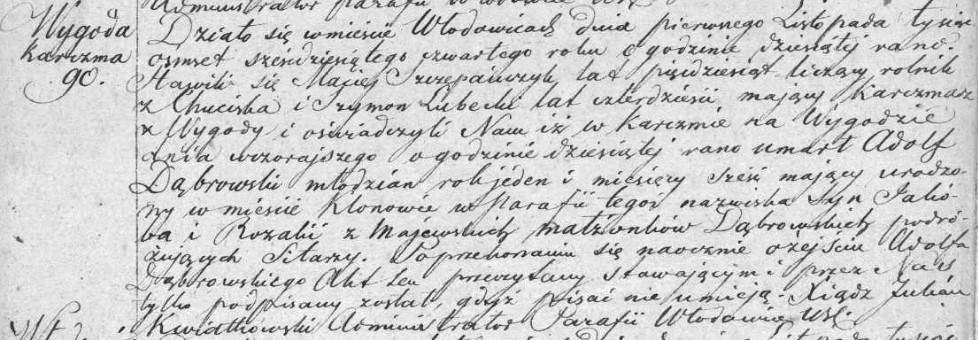 Administrator parafii Włodowice
Wygoda
karczma
90.
Działo się w mieście Włodowicach dnia pierwszego Listopada tysiąc
osmset sześdziesiątego czwartego roku o godzinie dziesiątej rano.
Stawili się Maciej Szczepańczyk lat pięćdziesiąt liczący rolnik
z Huciska i Szymon Lubecki lat czterdzieści mający Karczmarz
z Wygody i oświadczyli Nam iż w Karczmie na Wygodzie
dnia wczorajszego o godzinie dziesiątej rano umarł Adolf
Dąbrowski młodzian rok jeden i miesięcy sześ mający urodzo-
ny w mieście Klonowie w Parafii tegoż nazwiska Syn Jakó-
ba i Rozalii z Majewskich małżonków Dąbrowskich podró-
żujących Sitarzy. Po przekonaniu się naocznie o zejściu Adolfa
Dąbrowskiego Akt ten przeczytany stawającym i przez Nas
tylko podpisany został, gdyż pisać nie umieją. Xiądz Julian
Kwiatkowski Administrator Parafii Włodowic